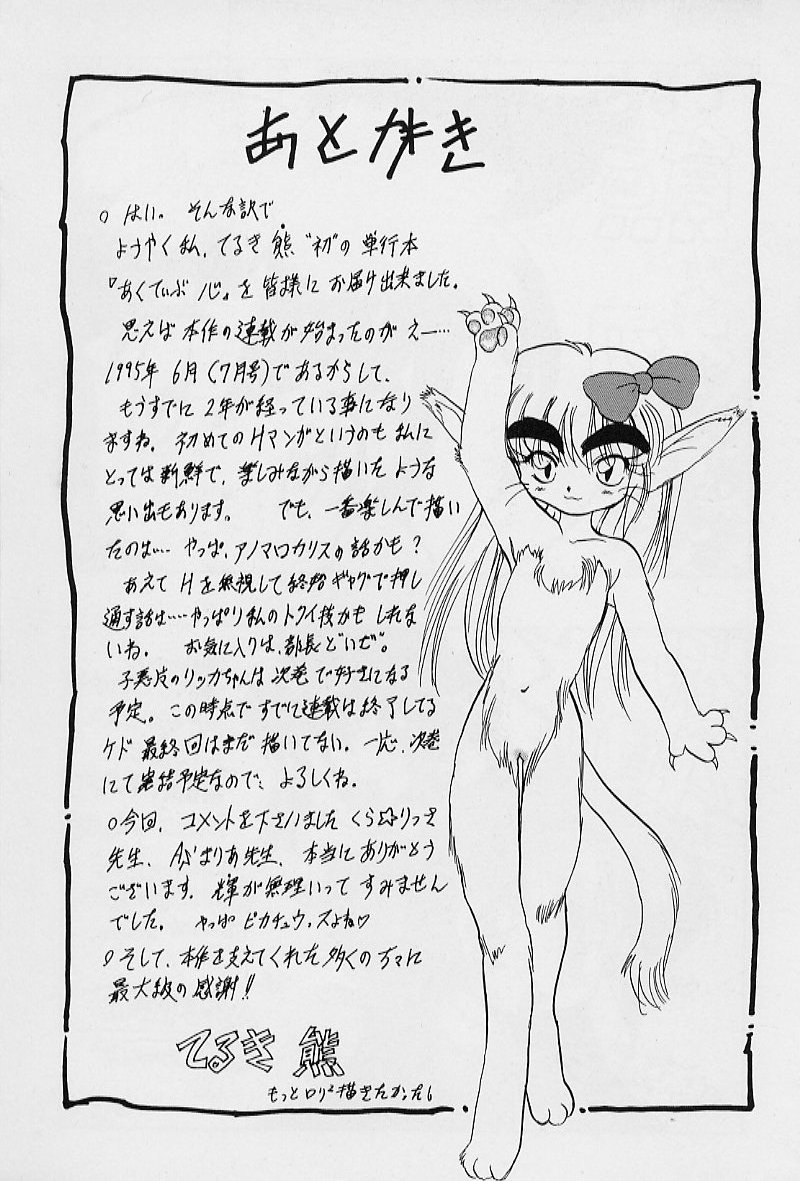 あとがき
○はい。そんな訳で
ようやく私、てるき熊“初”の単行本
『あくてぃぶ心』を皆様にお届け出来ました。
思えば本作の連載が始まったのがえー…
1995年6月(7月号)であるからして、
もうすでに2年が経っている事になり
ますね。初めてのHマンガというのも私に
とっては新鮮で、楽しみながら描いたような
思い出もあります。でも、一番楽しんで描い
たのは…やっぱ、アノマロカリスの話かも?
あえてHを無視して終始ギャグで押し
通す話は……やっぱり私のトクイ技かもしれな
いね。お気に入りは、部長どいぜ”。
子悪魔のリッカちゃんは次巻で好きになる
予定。この時点ですでに連載は終了してる
ケド最終回はまだ描いてない。一応、次巻
にて完結予定なので、よろしくね。
○今回、コメントを下さいましたくら☆りっさ
先生、みぶまりあ先生、本当にありがとう
ございます。輝が無理いってすみません
でした。やっぱピカチュウっスよね♡
○そして、本作を支えてくれた多くの方々に
最大級の感謝!!
てるき熊
もっとロリ²描きたかった。